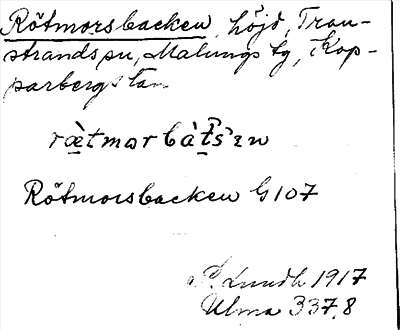 Rötmorsbacken, höjd, Tran-
strands sn, Malungs tg, Kop-
parbergs län
ræ̀tmorbàt͡s̀ɛn
Rötmorsbacken G 107
P. Lundh 1917
Ulma 337,8